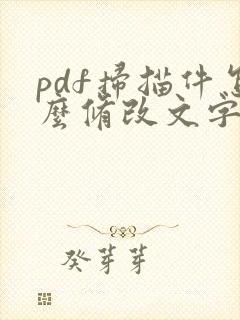 pdf掃描件怎
麼修改文字
癸芽芽